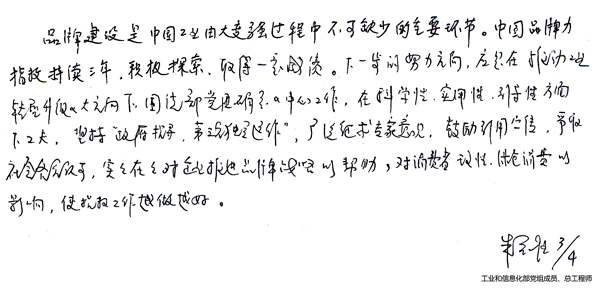 品牌建设是中国工业由大变强过程中不可缺少的重要环节。中国品牌力
指数持续三年，积极探索，取得一定成绩。下一步的努力方向，应在推动工业
转型升级的大方向下，围绕部党组确定的中心工作，在科学性、实用性、引导性方面
下工夫，坚持“政府指导，第三方独立运作”，广泛征求专家意见，鼓励引用宣传，争取
社会各界认可，实实在在对企业推进品牌战略以帮助，对消费者理性、绿色消费以
影响，使指数工作越做越好。
3/4
工业和信息化部党组成员、总工程师